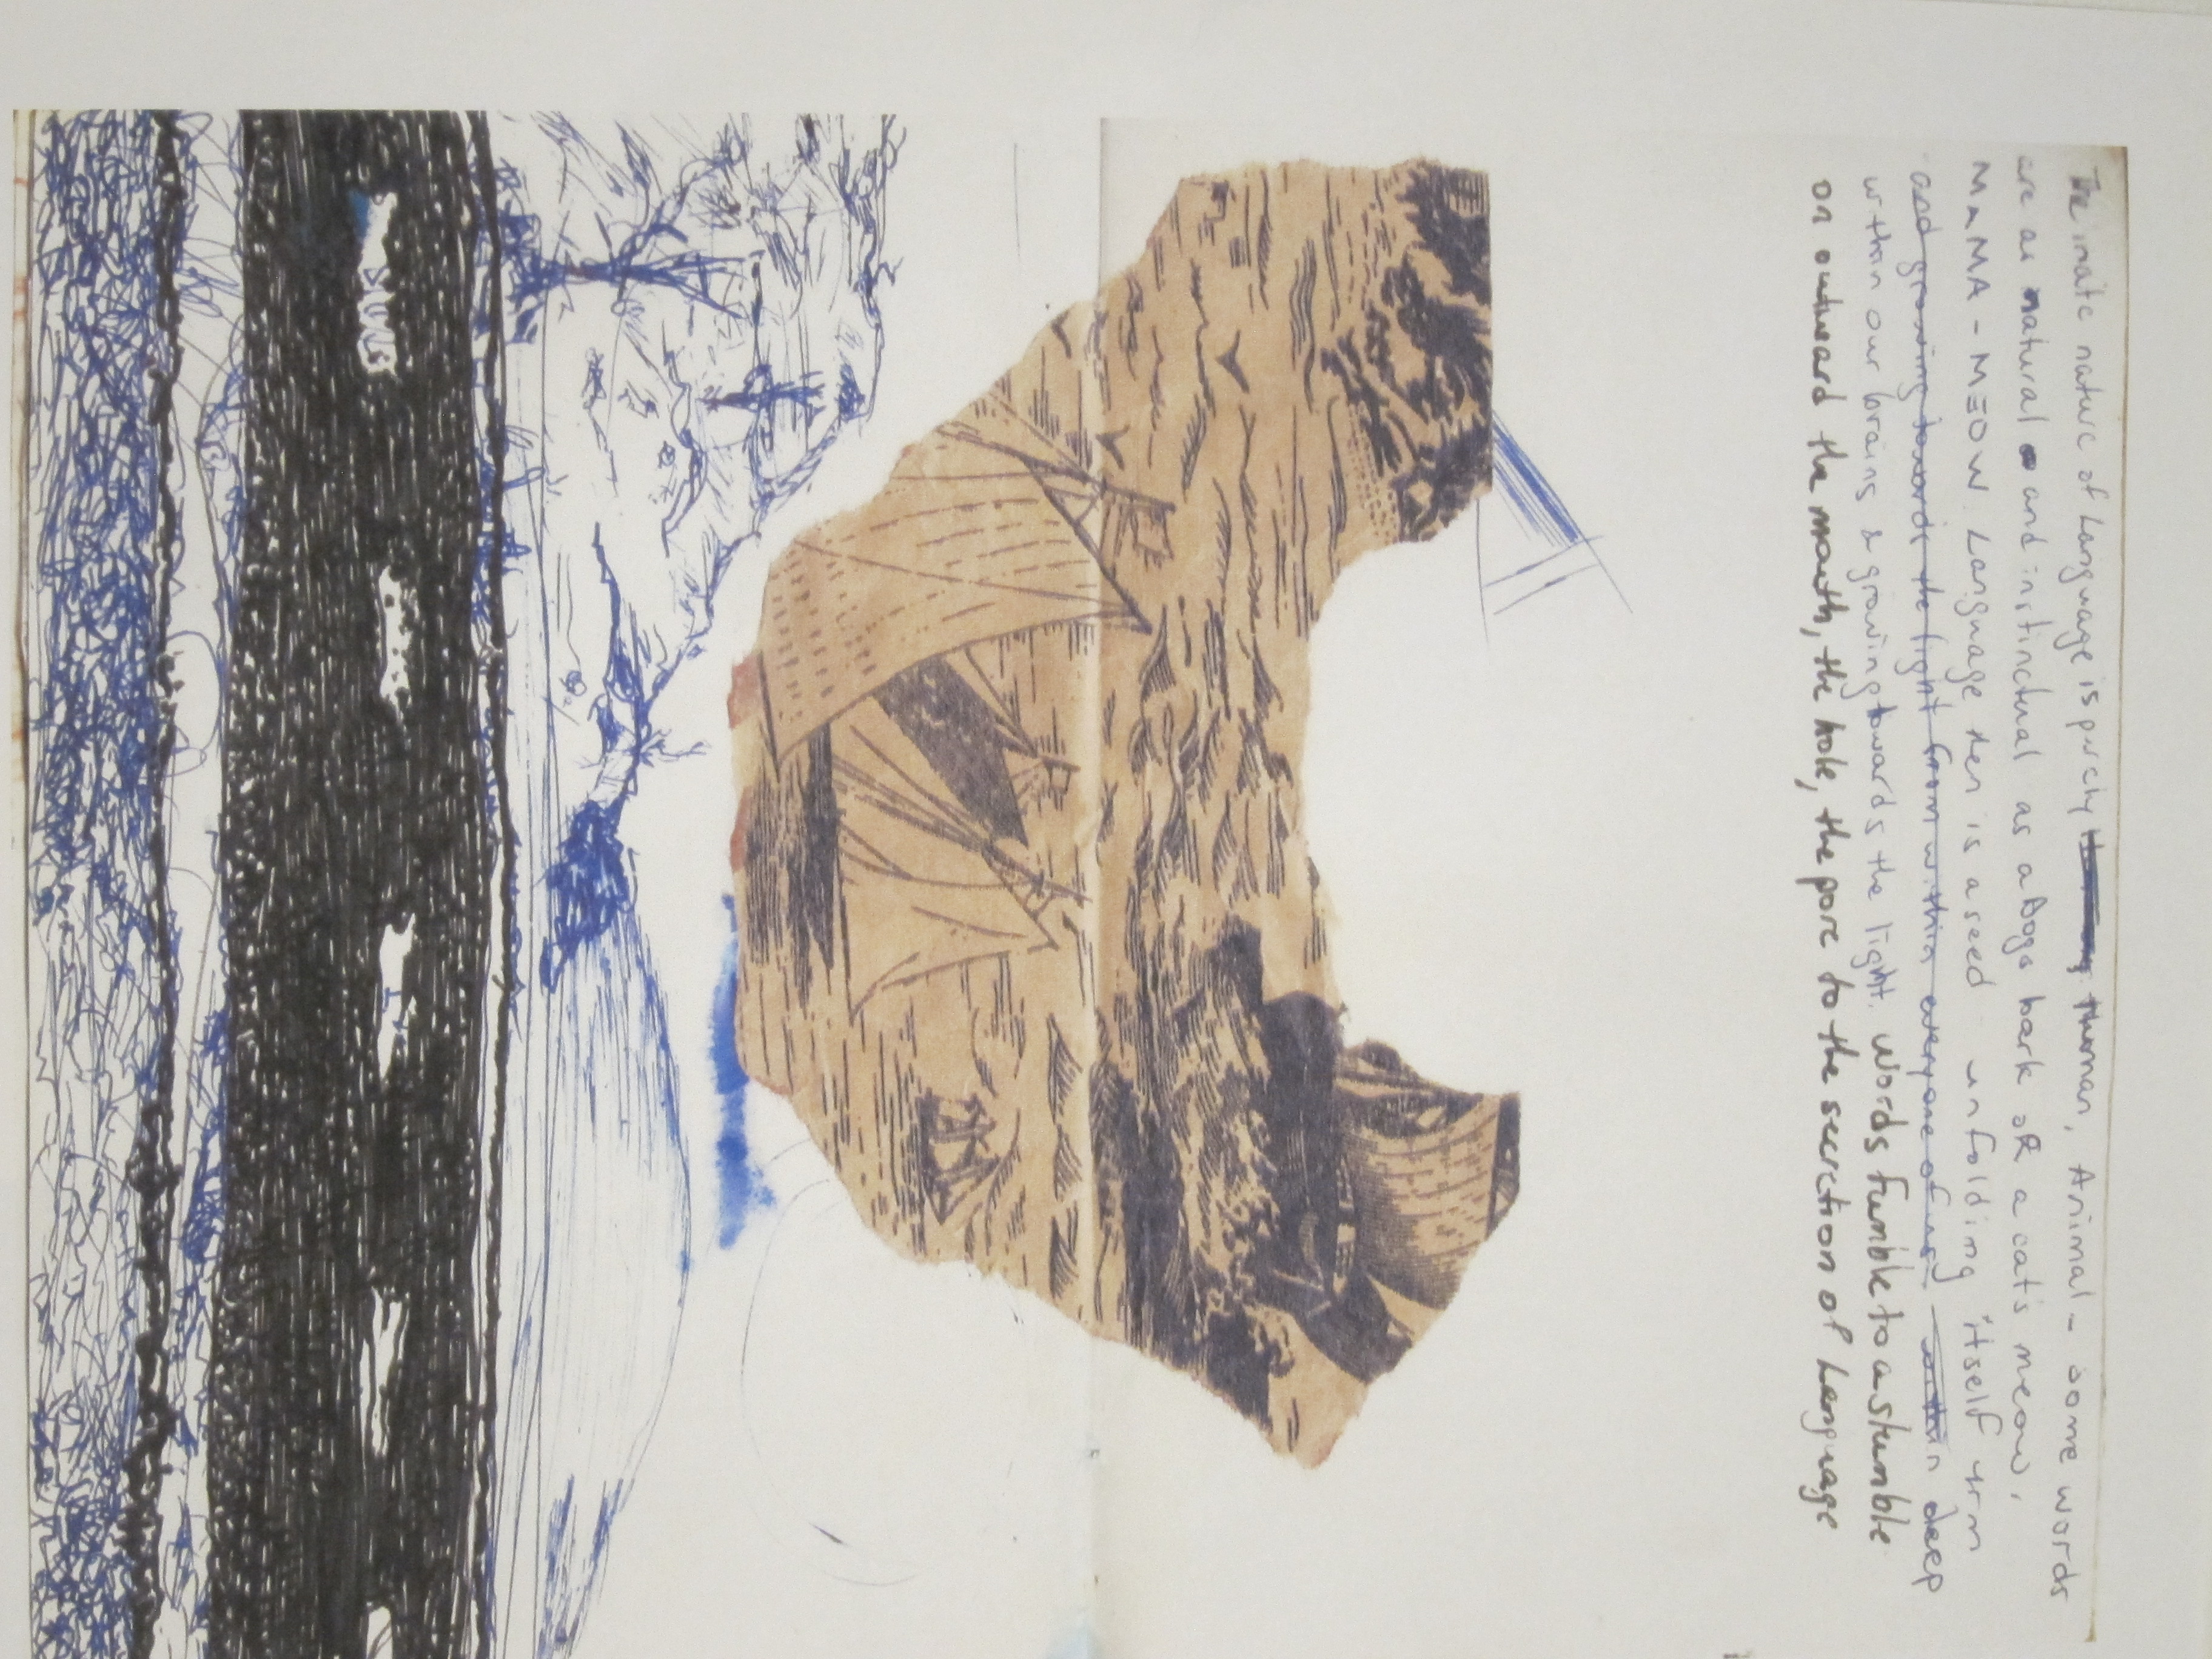 The inate nature of Language is purely Human, Animal - some words
are as natural and instinctual as a Dogs bark oR a cats meow.
MAMA - MEOW Language then is a seed unfolding itself
and growing towards the light from within everyone of us within deep
within our brains & growing towards the light. Words fumble to a stumble
on outward the mouth, the hole, the pore to the secretion of Language